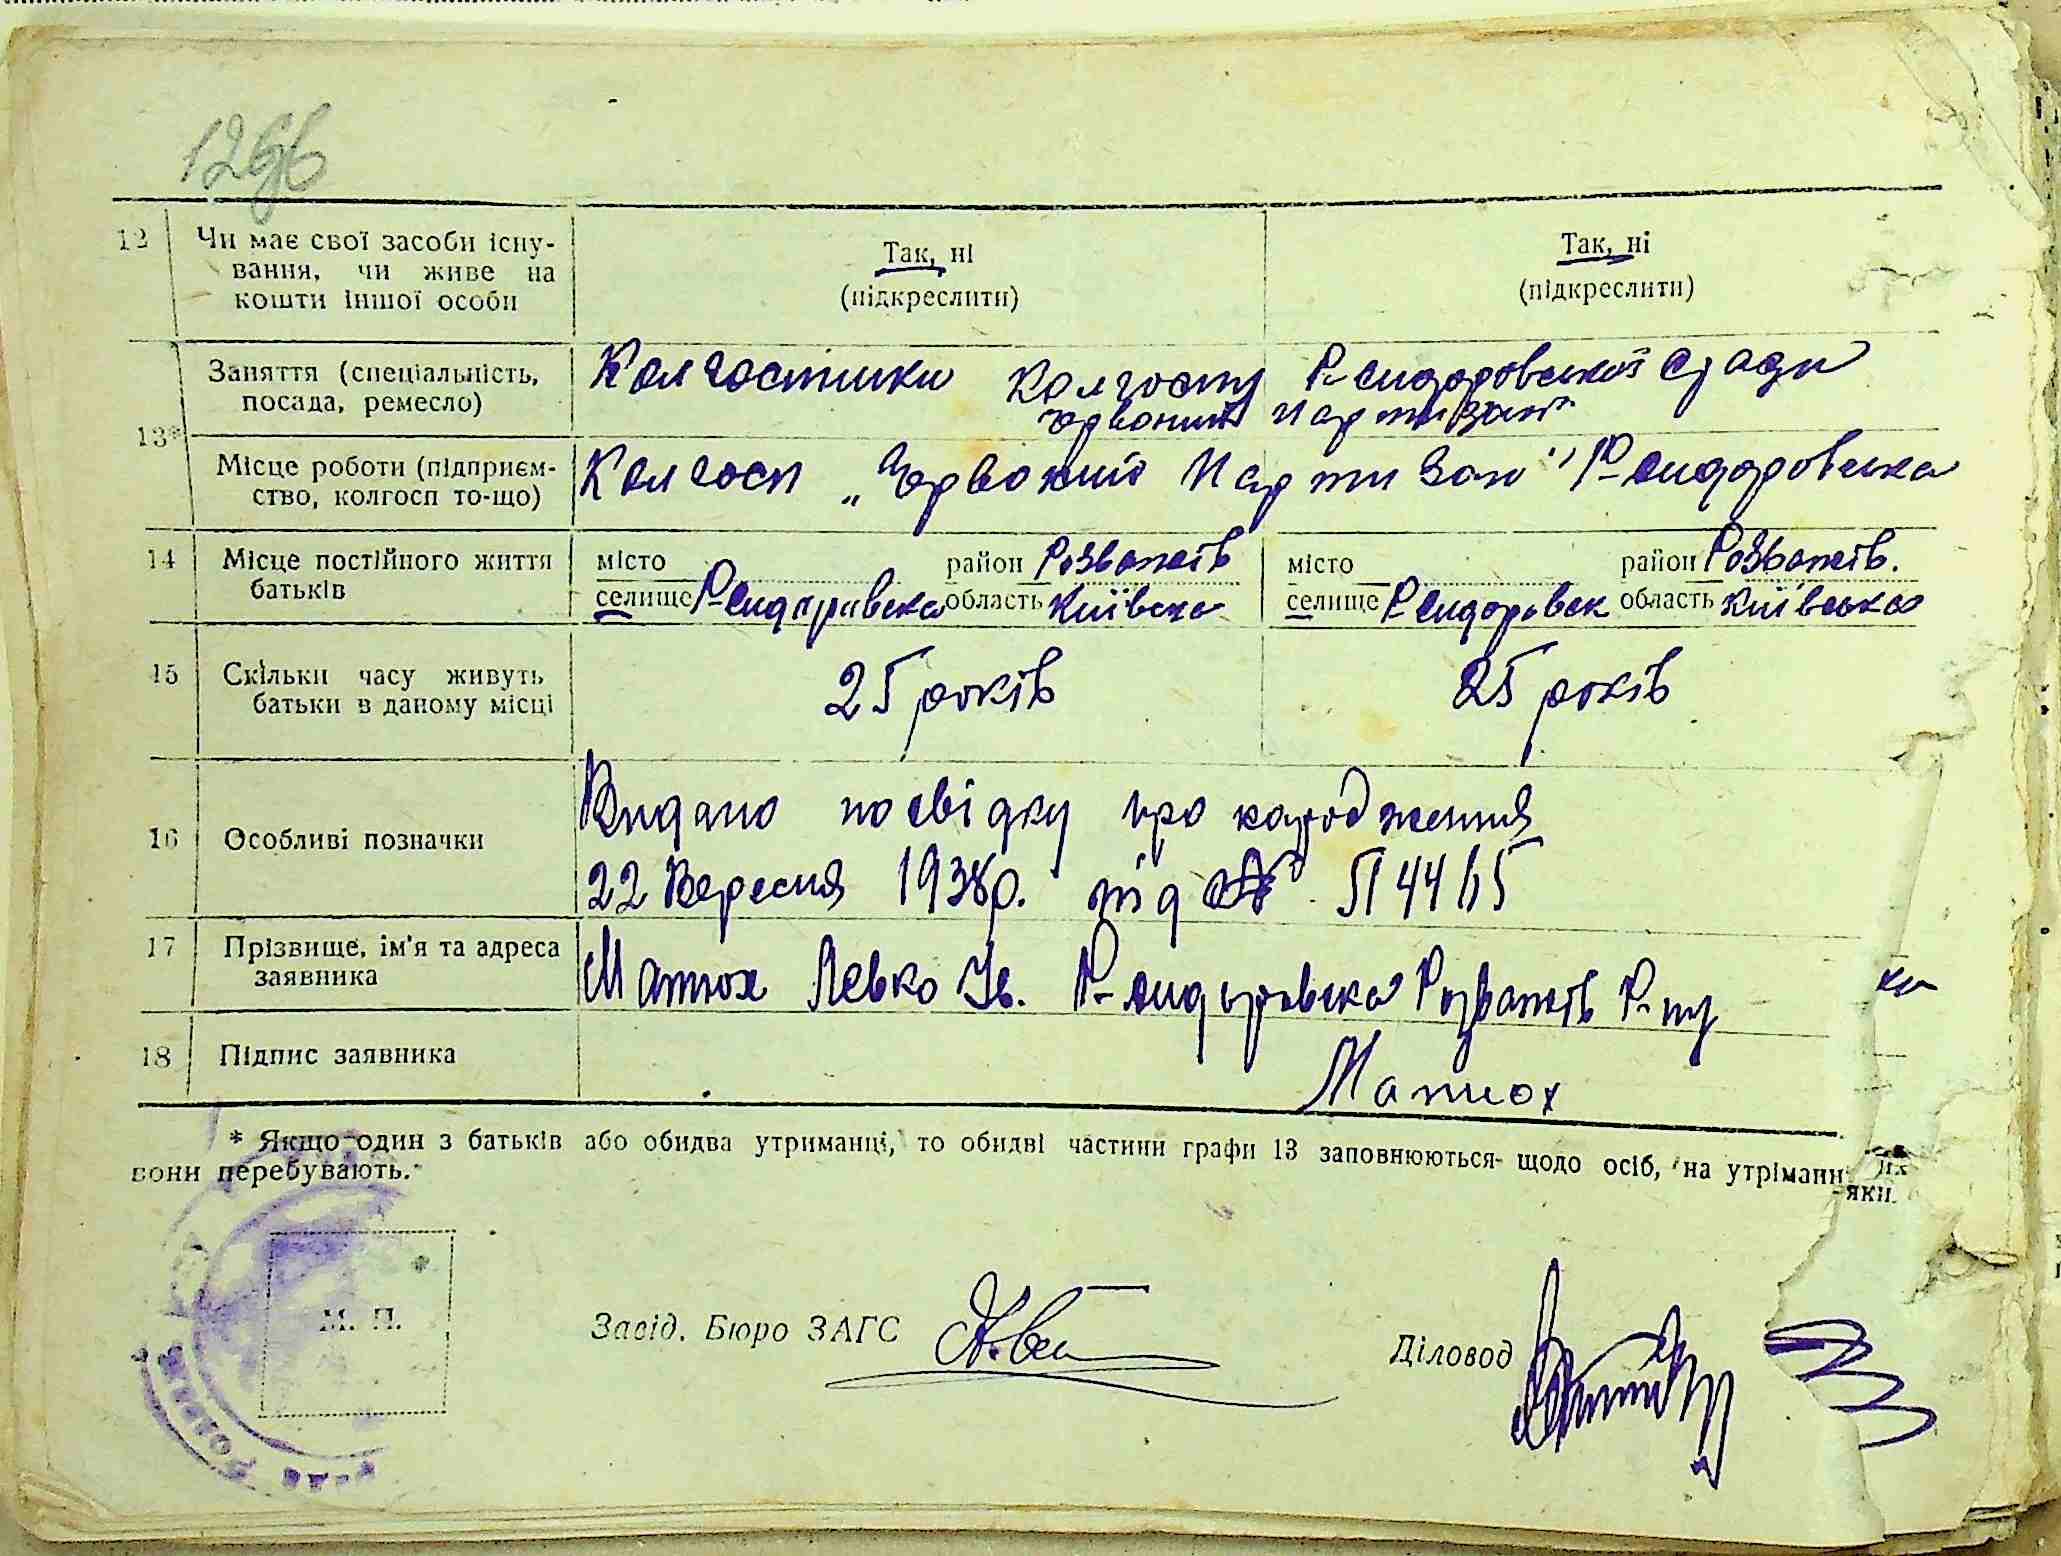 12
Чи має свої засоби існу-
вання, чи живе на
кошти іншої особи
Так, ні
(підкреслити)
Так, ні
(підкреслити)
13*
Заняття (спеціальність,
посада, ремесло)
Колгоспники колгоспу Р-Сидоровської с/ради
Червоний Партизан"
Місце роботи (підприєм-
ство, колгосп то-що)
Колгосп „Червоний Партизан" Р-Сидоровська
14
Місце постійного життя
батьків
місто район Розважів
селище Р-Сидоровська область Київська
місто район Розважів.
селище Р Сидоровськ область Київська
15
Скільки часу живуть
батьки в даному місці
25 років
25 років
16
Особливі позначки
Видано посвідку про народження
22 Вересня 1938р. під №
17
Прізвище, ім'я та адреса
заявника
Матюх Левко Ів. Р-Сидоровська Розважів Р-ну
18
Підпис заявника
Матюх
* Якщо один з батьків або обидва утриманці, то обидві частини графи 13 заповнюються щодо осіб, на утриманні яких
вони перебувають.
М. П.
Завід. Бюро ЗАГС
Діловод